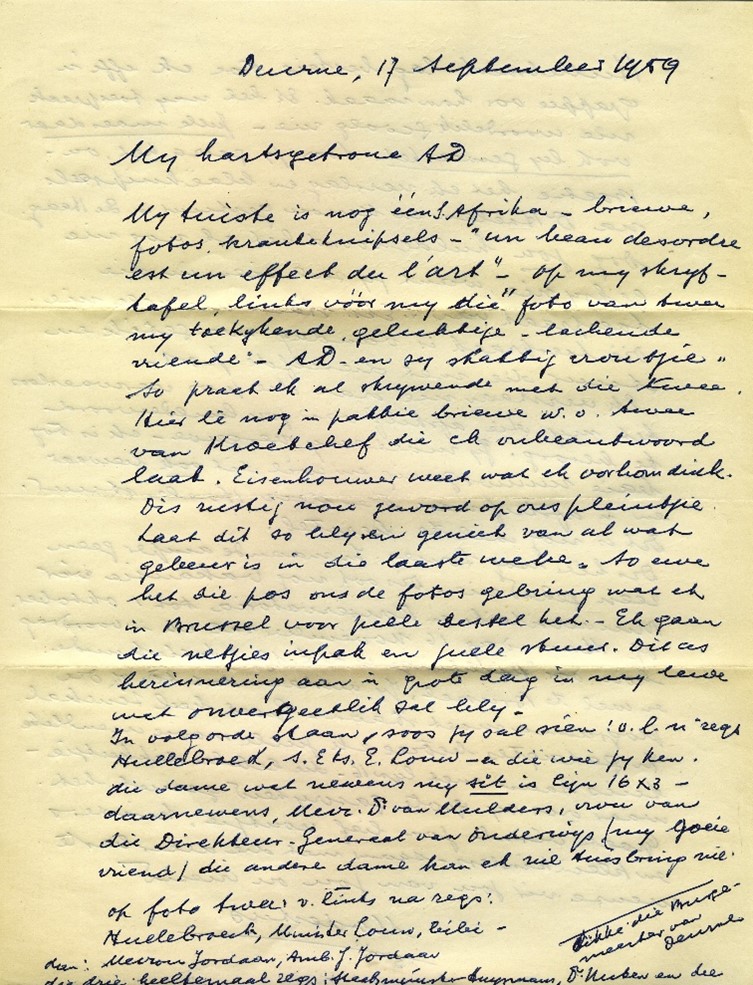 Deurne, 17 September 1959
My hartsgetroue AD
My tuiste is nog één! Afrika - briewe,
fotos, kranteknipsels - "un beau desordre
est un effect de l'art" - op my skryf-
tafel, links vóór my die" foto van twee
my toekykende, gelukkige - lachende
vriende" - AD - en sy skattig vroutjie"
So praet ek al skrywende met die twee.
Hier lê nog 'n pakkie briewe w.o. twee
van Kroetchef die ek onbeantwoord
laat. Eisenhouwer weet wat ek van hom dink.
Dis rustig nou geword op ons pleintjie.
Laat dit so bly en geniet van al wat
gebeur is in die laaste weke. So ewe
het die pos ons de fotos gebring wat ek
in Brussel voor julle bestel het. - Ek gaan
die netjies inpak en julle stuur. Dit as
herinnering aan 'n grote dag in my lewe
wat onvergeetlik sal bly.
In volgorde staan, soos jy sal sien: v. l. n regs
Hullebroeck, s. Eks. E. Louw - en die wie jy ken.
die dame wat newens my sit is Lijn 16 x 3 -
daarnewens, Mevr. Dr van Mulders, vrou van
die Direkteur-Generaal van Onderwijs (my goeie
vriend) die andere dame kan ek nie tuisbring nie.
op foto twee: v. links na regs:
Hullebroeck, Minister Louw,
dan: Mevrou Jordaan, Amb. J. Jordaan
die drie heeltemaal regs: Huysmans, Dr. en die
dikke die Burge-
meester van
Deurne